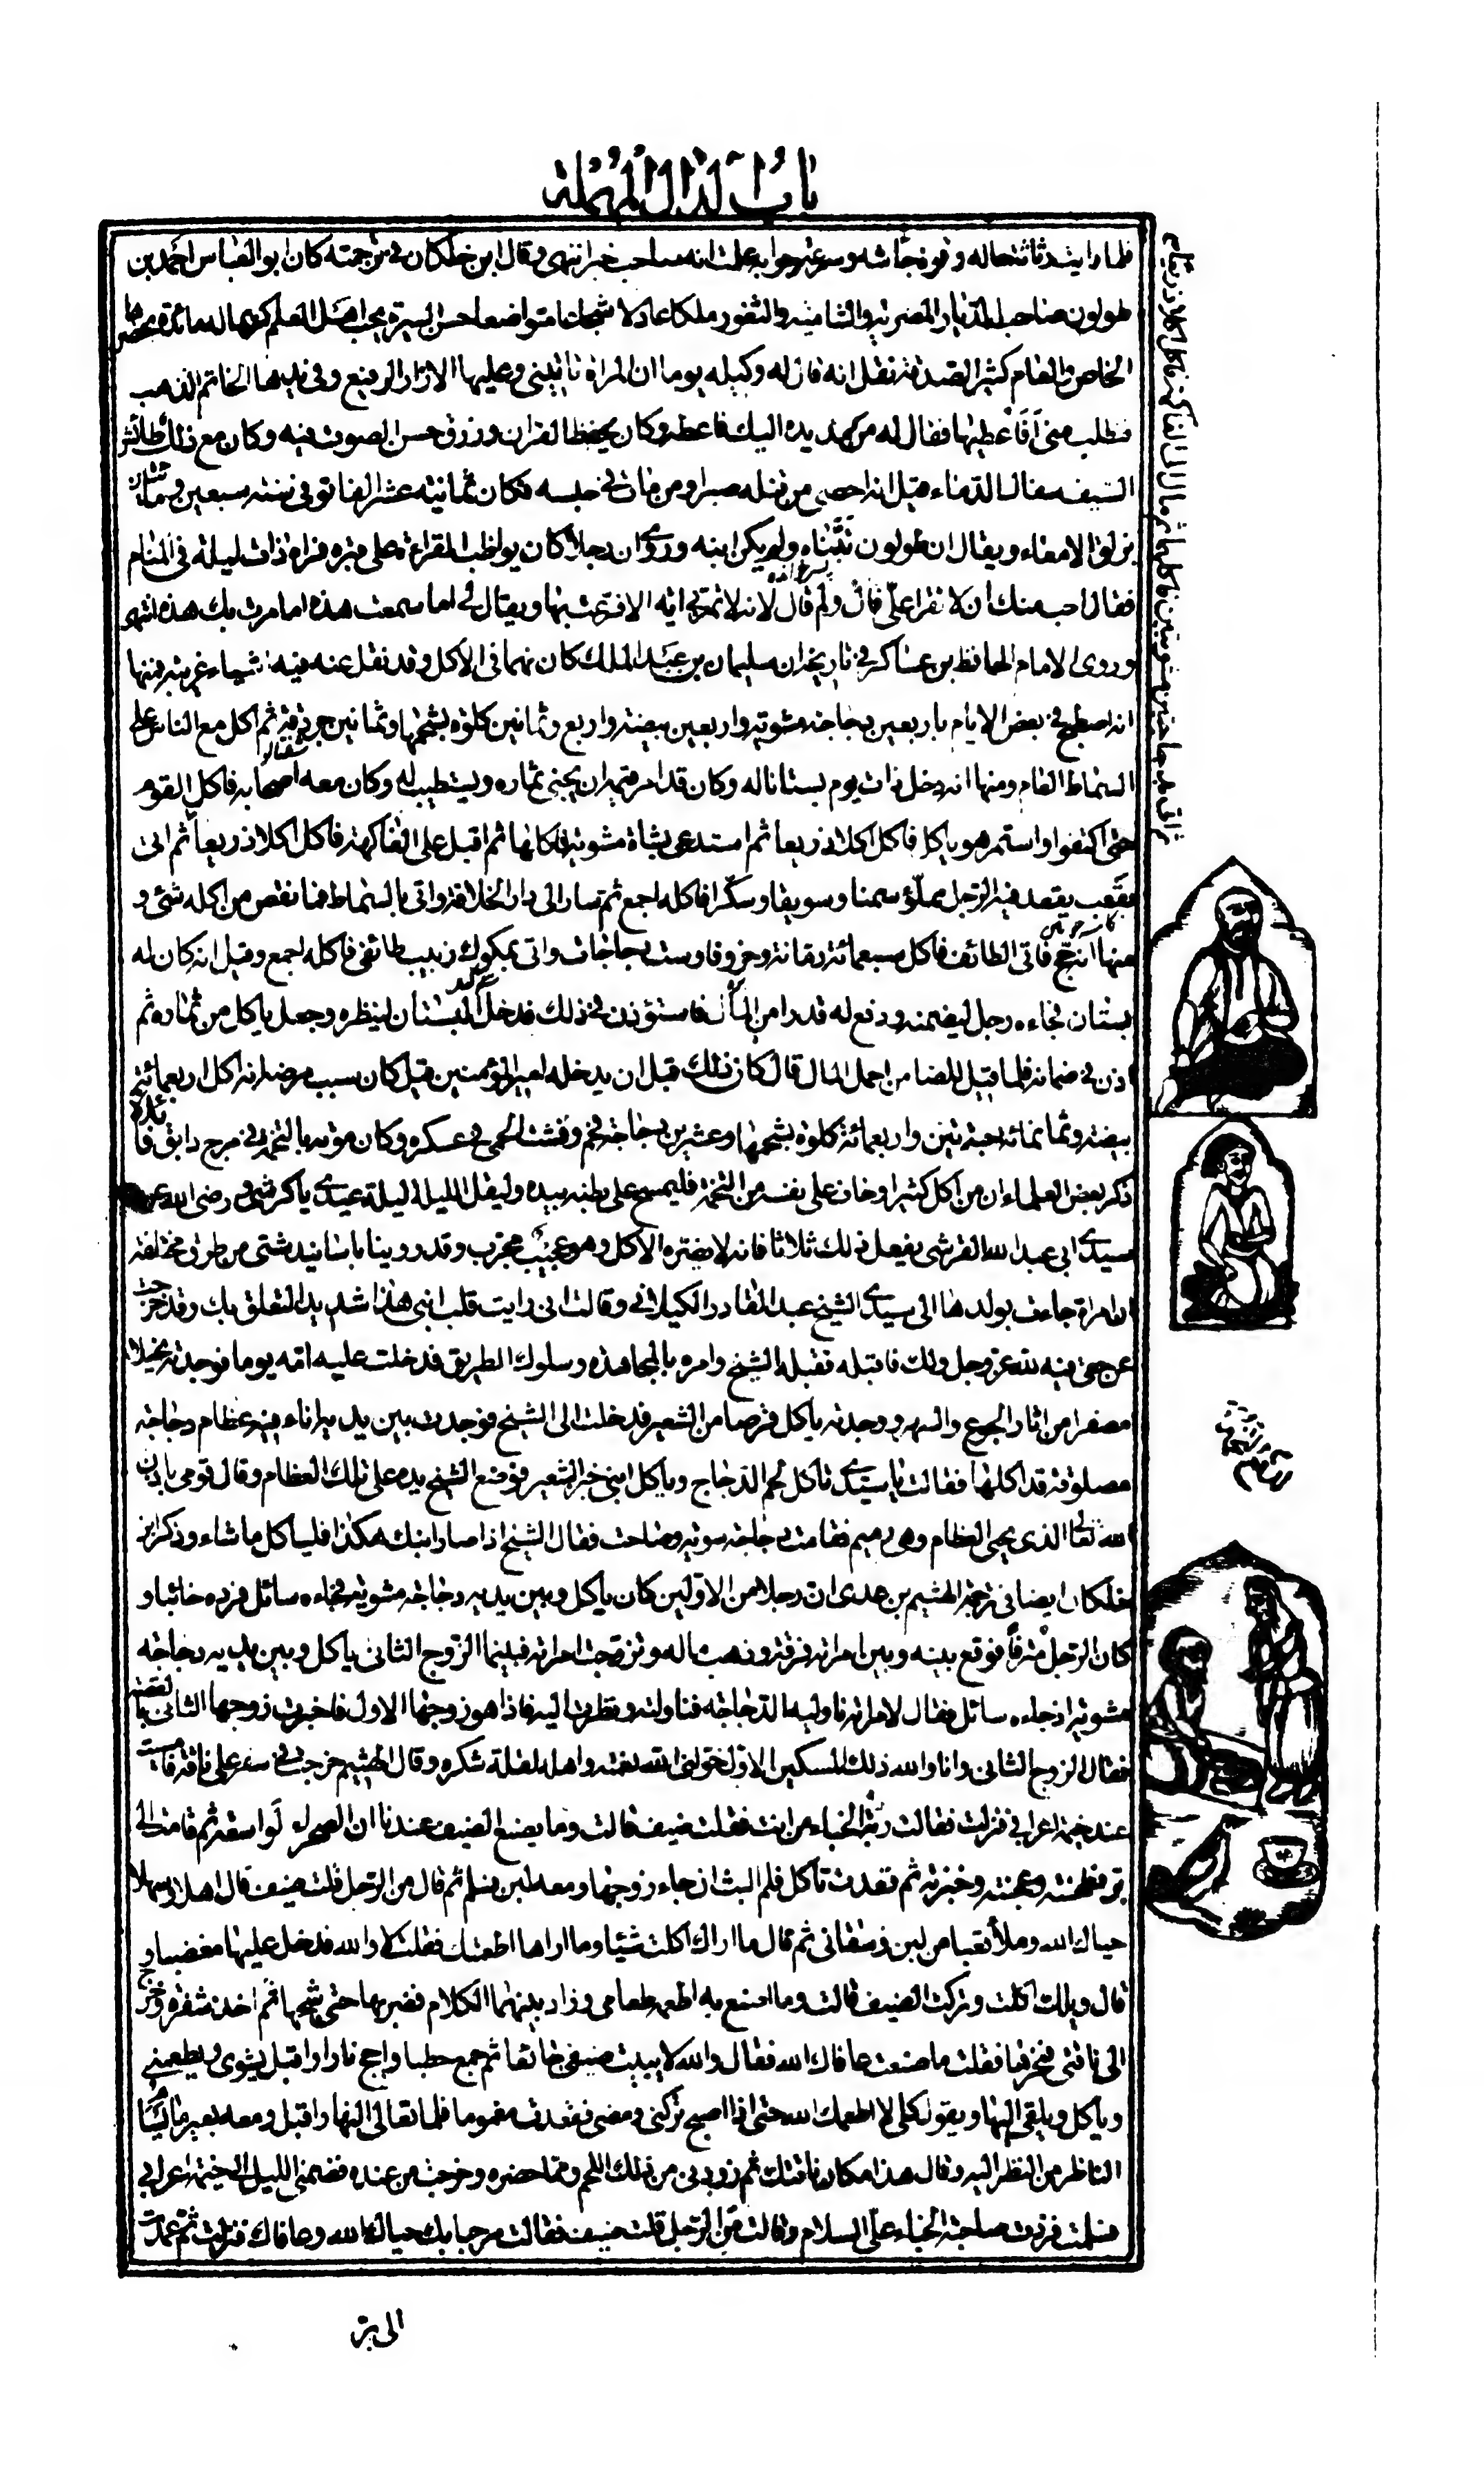 باب الدال المهملة
فلما رايت رثاثة حاله وقوة جاشه وسرعة جوابه علمت انه صاحب خبر انتهى وقال ابن خلكان في ترجمته كان ابو العباس احمد بن
طولون صاحب الديار المصرية والشامية والثغور ملكا عادلا شجاعا متواضعا حسن السيرة يحب اهل العلم كريما له مائدة يحضرها
الخاص والعام كثير الصدقة نقل انه قال له وكيله يوما ان المراة تاتيني وعليها الازار الرفيع وفي يدها الخاتم الذهب
فتطلب مني افاعطيها فقال له من مد يده اليك فاعطه وكان يحفظ القران ورزق حسن الصوت فيه وكان مع ذلك طائش
السيف سفاك الدماء قيل انه احصي من قتله صبرا ومن مات في حبسه فكان ثمانية عشر الفا توفي في سنة سبعين ومائتين
بزلق الامعاء ويقال ان طولون تبناه ولم يكن ابنه وروي ان رجلا كان يواظب القراءة على قبره فراه ذات ليلة في المنام
فقال احب منك ان لا تقرا علي قال ولم قال لانه لا تمر بي اية الا قرعت بها ويقال لي اما سمعت هذه اما مرت بك هذه انتهى
وروى الامام الحافظ بن عساكر في تاريخه ان سليمان بن عبد الملك كان نهما في الاكل وقد نقل عنه فيه اشياء غريبة فمنها
انه اصطبح في بعض الايام باربعين دجاجة مشوية واربعين بيضة واربع وثمانين كلوة بشحمها وثمانين جردقة ثم اكل مع الناس على
السماط العام ومنها انه دخل ذات يوم بستانا له وكان قد امر قيمه ان يجني ثماره ويستطيب له وكان معه اصحابه فاكل القوم
حتى اكتفوا واستمر هو ياكل فاكل اكلا ذريعا ثم استدعى بشاة مشوية فاكلها ثم اقبل على الفاكهة فاكل اكلا ذريعا ثم اتى
بقعب يقعد فيه الرجل مملؤ سمنا وسويقا وسكرا فاكله اجمع ثم سار الى دار الخلافة واتى بالسماط فما نقص من اكله شئ و
منها انه حج فاتى الطائف فاكل سبعمائة رمانة وخروفا وست دجاجات واتى بمكوك زبيب طائفي فاكله اجمع وقيل انه كان له
بستان فجاءه رجل ليضمنه ودفع له قدرا من المال فاستؤذن في ذلك فدخل البستان لينظره وجعل ياكل من ثماره ثم
اذن في ضمانه فلما قيل للضامن احمل المال قال كان ذلك قبل ان يدخله امير المؤمنين قيل كان سبب مرضه انه اكل اربعمائة
بيضة وثمانمائة حبة تين واربعمائة كلوة بشحمها وعشرين دجاجة فحم وفشت الحمى في عسكره وكان موته بالتخمة في مرج دابق فائدة
ذكر بعض العلماء ان من اكل كثيرا وخاف على نفسه من التخمة فليمسح على بطنه بيده وليقل الليلة ليلة عيدي يا كرشي ورضي الله عن
سيدي ابي عبد الله القرشي يفعل ذلك ثلاثا فانه لا يضره الاكل وهو عجيب مجرب وقد روينا باسانيد شتى من طرق مختلفة
ان امراة جاءت بولدها الى سيدي الشيخ عبد القادر الكيلاني وقالت اني رايت قلب ابني هذا شديد التعلق بك وقد خرجت
عن حقي فيه لله عز وجل ولك فاقبله فقبله الشيخ وامره بالمجاهدة وسلوك الطريق فدخلت عليه امه يوما فوجدته نحيلا
مصفرا من اثار الجوع والسهر ووجدته ياكل قرصا من الشعير فدخلت الى الشيخ فوجدت بين يديه اناء فيه عظام دجاجة
مصلوقة قد اكلها فقالت يا سيدي تاكل لحم الدجاج وياكل ابني خبز الشعير فوضع الشيخ يده على تلك العظام وقال قومي باذن
الله تعالى الذي يحيي العظام وهي رميم فقامت دجاجة سوية وصاحت فقال الشيخ اذا صار ابنك هكذا فلياكل ما شاء وذكر ابن
خلكان ايضا في ترجمة الهيثم بن عدي ان رجلا من الاولين كان ياكل وبين يديه دجاجة مشوية فجاءه سائل فرده خائبا و
كان الرجل مترفا فوقع بينه وبين امراته فرقة وذهب ماله وتزوجت امراته فبينما الزوج الثاني ياكل وبين يديه دجاجة
مشوية اذ جاءه سائل فقال لامراته ناوليه الدجاجة فناولته ونظرت اليه فاذا هو زوجها الاول فاخبرت زوجها الثاني بالقصة
فقال الزوج الثاني وانا والله ذلك المسكين الاول خولني الله نعمته واهله لقلة شكره وقال الهيثم خرجت في سفر على ناقة فامسيت
عند خيمة اعرابي فنزلت فقالت ربة الخباء من انت فقلت ضيف قالت وما يصنع الضيف عندنا ان الصحراء لواسعة ثم قامت الى
بر فطحنته وعجنته وخبزته ثم قعدت تاكل فلم البث ان جاء زوجها ومعه لبن فسلم ثم قال من الرجل قلت ضيف قال اهلا وسهلا
حياك الله وملأ قعبا من لبن وسقاني ثم قال ما اراك اكلت شيئا وما اراها اطعمتك فقلت لا والله فدخل عليها مغضبا و
قال ويلك اكلت وتركت الضيف قالت وما اصنع به اطعمه طعامي وزاد بينهما الكلام فضربها حتى شجها ثم اخذ شفرة وخرج
الى ناقتي فنحرها فقلت ما صنعت عافاك الله فقال والله لا يبيت ضيفي جائعا ثم جمع حطبا واجج نارا واقبل يشوي ويطعمني
وياكل ويلقي اليها ويقول كلي لا اطعمك الله حتى اذا اصبح تركني ومضى فقعدت مغموما فلما تعالى النهار اقبل ومعه بعير ما يسأم
الناظر من النظر اليه وقال هذا مكان ناقتك ثم زودني من ذلك اللحم ومما حضره وخرجت من عنده فضمني الليل الى خيمة اعرابي
فسلمت فردت صاحبة الخباء علي السلام وقالت من الرجل قلت ضيف فقالت مرحبا بك حياك الله وعافاك فنزلت ثم عمدت
الى بر